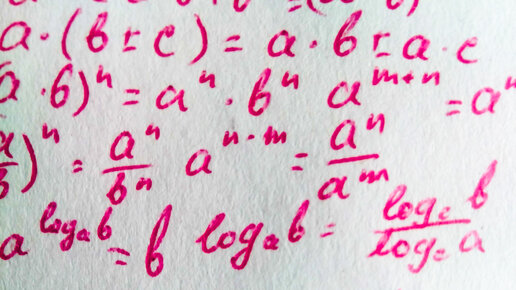 a · (b ± c) = a · b ± a · c
(a · b)ⁿ = aⁿ · bⁿ a^(m+n) = aⁿ
(a/b)ⁿ = aⁿ/bⁿ a^(n-m) = aⁿ/a^m
a^(log_a b) = b log_a b = log_c b / log_c a